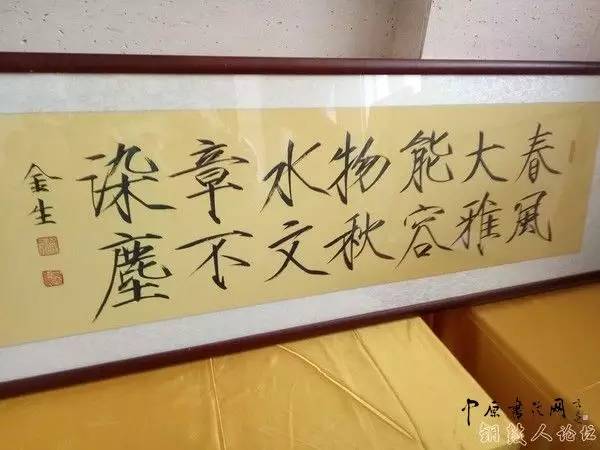 春風
大雅
能容
物秋
水文
章不
染塵
金生
中原书法网
铜鼓人论坛